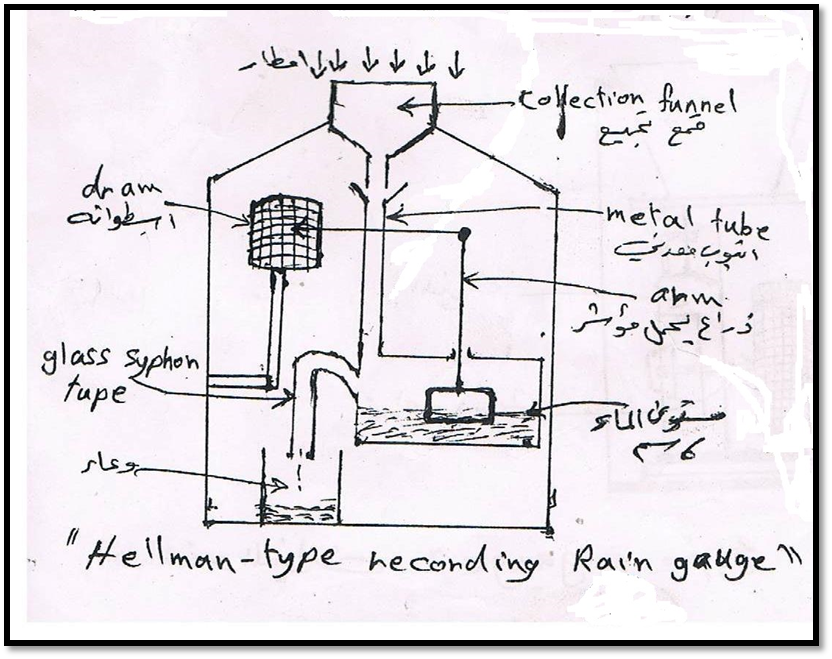 امطار
Collection funnel
قمع تجميع
dram
اسطوانه
metal tube
انبوب معدني
arm
ذراع يحمل مؤشر
glass syphon
tupe
مستوى الماء
وعاء
"Hellman-type recording Rain gauge"